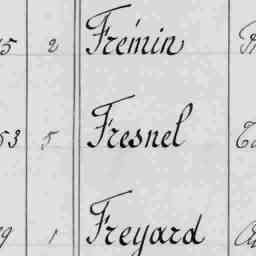 5 2 Frémin
53 5 Fresnel
9 1 Freyard